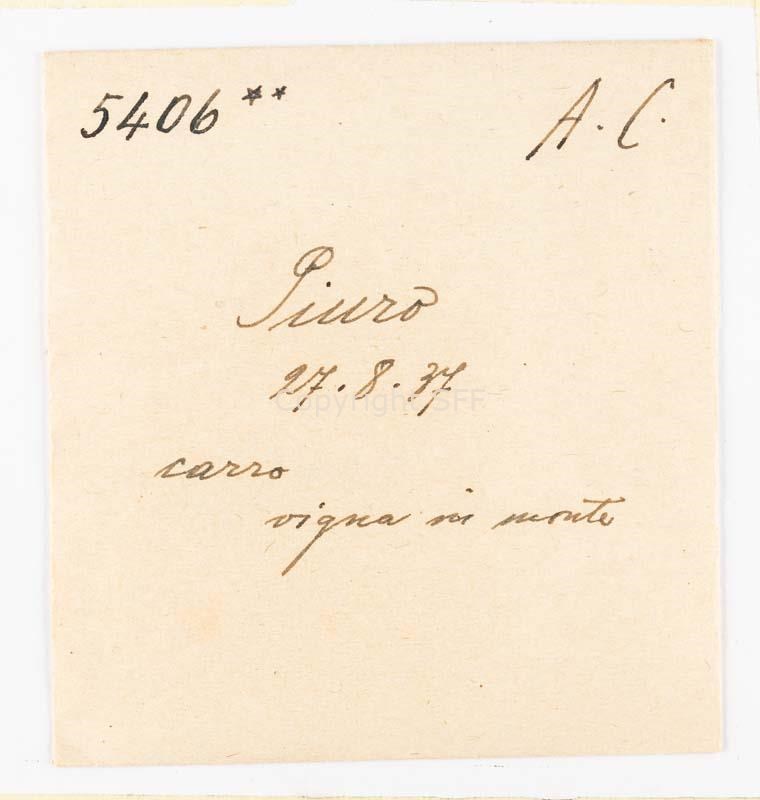 5406** A. C.
Piuro
27. 8. 37
Copyright SFF
carro
vigna in monte